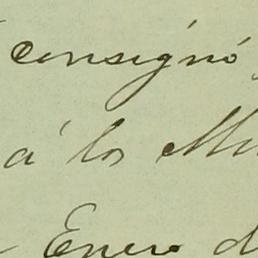 consignó
á los
Enero d